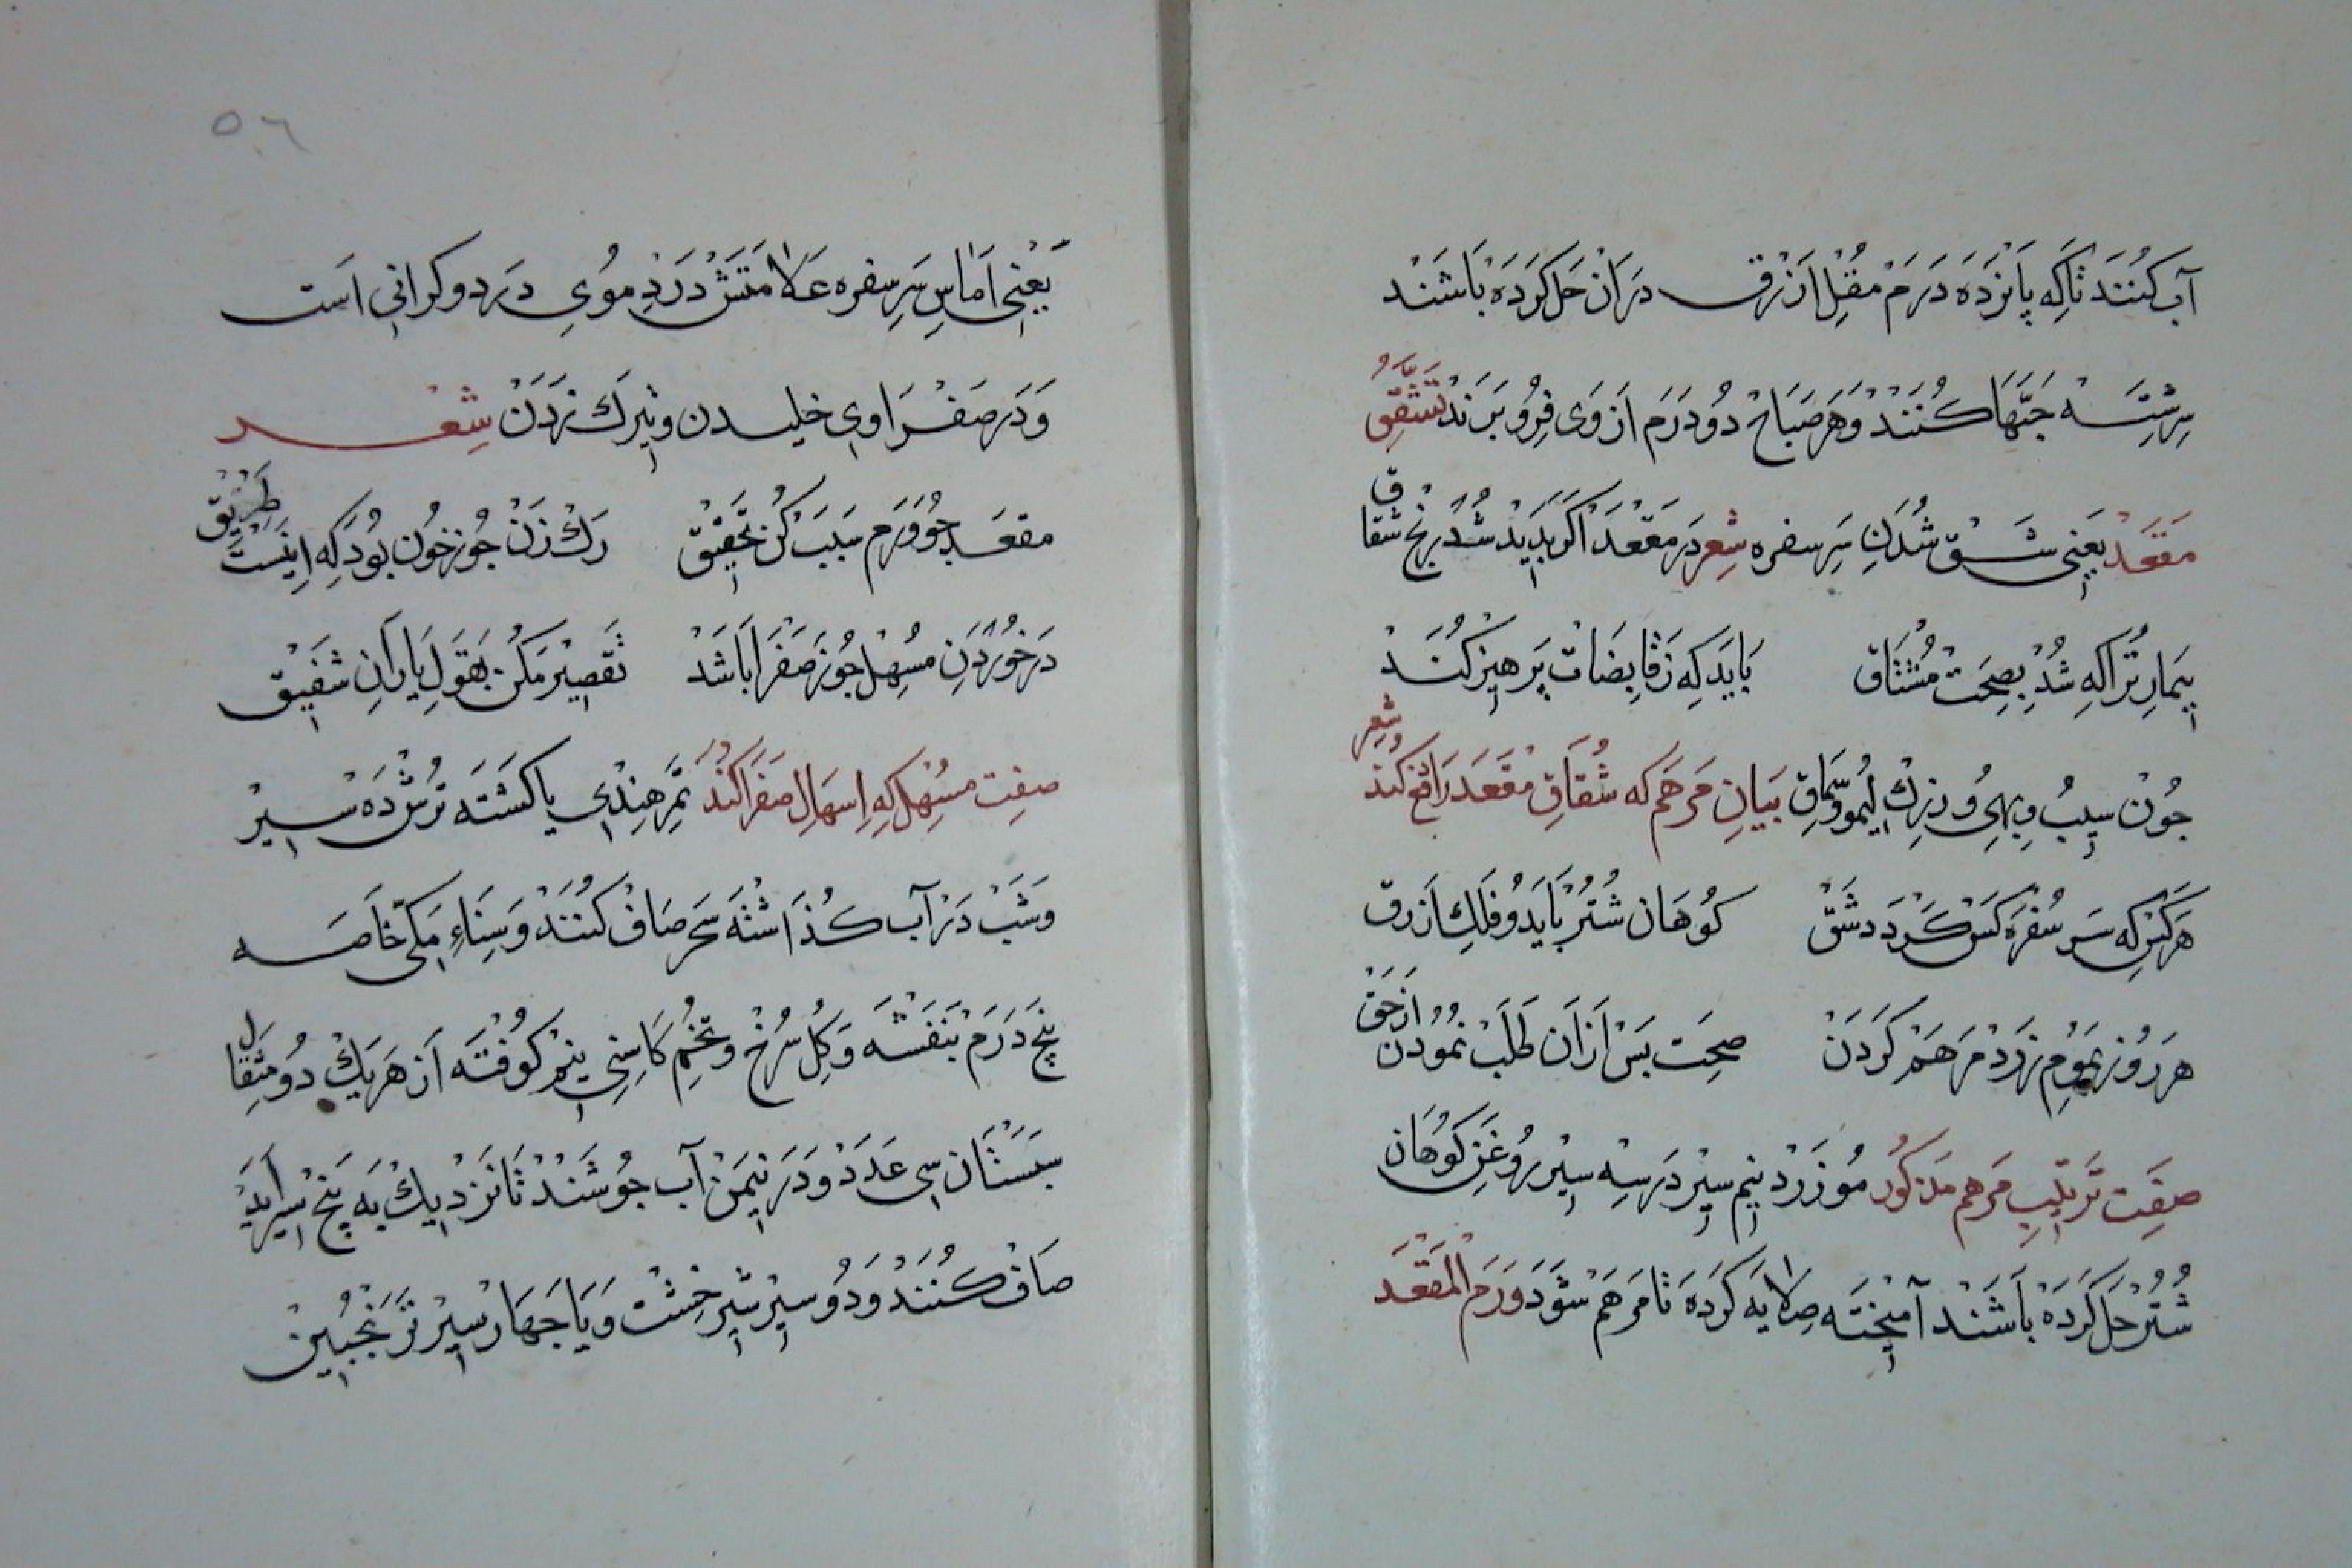 آب کنند تاکه پانزده درم مقل ازرق دران حل کرده باشند
سرشته حبها کنند و هر صباح دو درم از وی فرو برند تشقق
مقعد یعنی شق شدن سر سفره شعر در مقعد اکر بدید شد رنج شقاق
بیمار ترا که شد بصحت مشتاق باید که ز قابضات پرهیز کند
جون سیب و بهی و زرک لیمو و سماق بیان مرهم که شقاق مقعد را نافع کند شعر
هر کس که سر سفره کس کردد شق کوهان شتر باید و فلک ازرق
هر روز بموم زرد مرهم کردن صحت بس ازان طلب نمودن از حق
صفت ترتیب مرهم مذکور موم زرد نیم سیر در سه سیر روغن کوهان
شتر حل کرده باشند آمیخته صلایه کرده تا مرهم شود ورم المقعد
٥٦
یعنی اماس سر سفره علامتش در دموی درد و کرانی است
و در صفراوی خلیدن و تیرک زدن شعر
مقعد جو ورم سبب کن تحقیق رک زن جوز خون بود که اینست طریق
در خوردن مسهل جوز صفرا باشد تقصیر مکن بقول یاران شفیق
صفت مسهل که اسهال صفرا کند تمر هندی یا کشته ترش ده سیر
و شب در آب کذاشته سحر صاف کنند و سناء مکی خاصه
پنج درم بنفشه و کل سرخ و تخم کاسنی نیم کوفته از هر یک دو مثقال
سبستان سی عدد و در نیمن آب جوشند تا نزدیک به پنج سیر آید
صاف کنند و دو سیر شیر خشت و یا جهار سیر ترنجبین